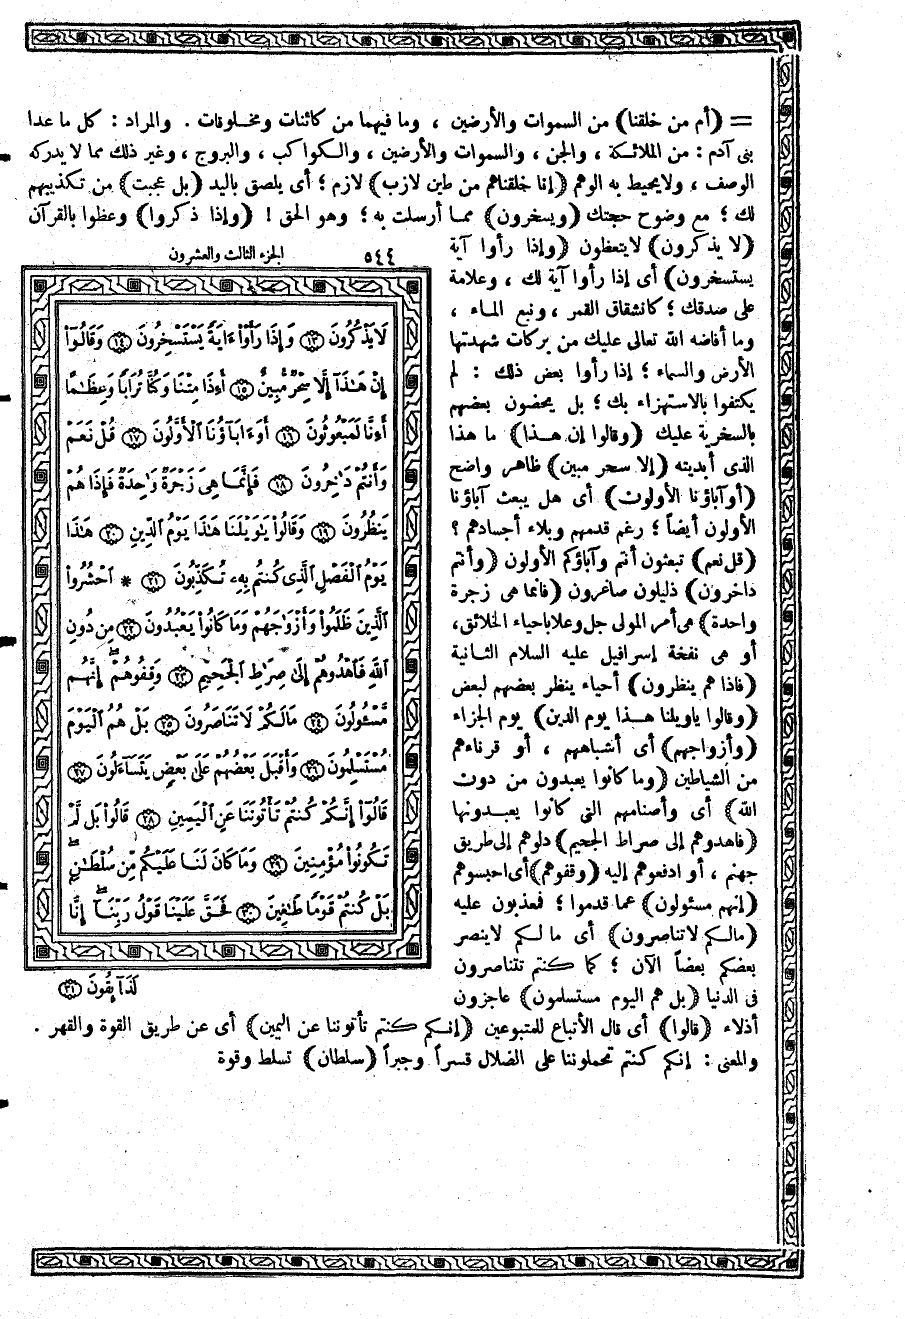 = (أم من خلقنا) من السموات والأرضين ، وما فيهما من كائنات ومخلوقات . والمراد : كل ما عدا
بنى آدم : من الملائكة ، والجن ، والسموات والأرضين ، والكواكب ، والبروج ، وغير ذلك مما لا يدركه
الوصف ، ولا يحيط به الوهم (إنا خلقناهم من طين لازب) لازم ؛ أى يلصق باليد (بل عجبت) من تكذيبهم
لك ؛ مع وضوح حجتك (ويسخرون) مما أرسلت به ؛ وهو الحق ! (وإذا ذكروا) وعظوا بالقرآن
(لا يذكرون) لا يتعظون (وإذا رأوا آية
يستسخرون) أى إذا رأوا آية لك ، وعلامة
على صدقك ؛ كانشقاق القمر ، ونبع الماء ،
وما أفاضه الله تعالى عليك من بركات شهدتها
الأرض والسماء ؛ إذا رأوا بعض ذلك : لم
يكتفوا بالاستهزاء بك ؛ بل يحضون بعضهم
بالسخرية عليك (وقالوا إن هذا) ما هذا
الذى أبديته (إلا سحر مبين) ظاهر واضح
(أو آباؤنا الأولون) أى هل يبعث آباؤنا
الأولون أيضاً ؛ رغم قدمهم وبلاء أجسادهم ؟
(قل نعم) تبعثون أنتم وآباؤكم الأولون (وأنتم
داخرون) ذليلون صاغرون (فانما هى زجرة
واحدة) هى أمر المولى جل وعلا باحياء الخلائق،
أو هى نفخة إسرافيل عليه السلام الثانية
(فاذا هم ينظرون) أحياء ينظر بعضهم لبعض
(وقالوا ياويلنا هذا يوم الدين) يوم الجزاء
(وأزواجهم) أى أشباههم ، أو قرناءهم
من الشياطين (وما كانوا يعبدون من دون
الله) أى وأصنامهم التى كانوا يعبدونها
(فاهدوهم إلى صراط الجحيم) دلوهم إلى طريق
جهنم ، أو ادفعوهم إليه (وقفوهم) أى احبسوهم
(إنهم مسئولون) عما قدموا ؛ فمعذبون عليه
(مالكم لا تناصرون) أى ما لكم لا ينصر
بعضكم بعضاً الآن ؛ كما كنتم تتناصرون
فى الدنيا (بل هم اليوم مستسلمون) عاجزون
أذلاء (قالوا) أى قال الأتباع للمتبوعين (إنكم كنتم تأتوننا عن اليمين) أى عن طريق القوة والقهر .
والمعنى : إنكم كنتم تحملوننا على الضلال قسراً وجبراً (سلطان) تسلط وقوة
٥٤٤ الجزء الثالث والعشرون
لَا يَذْكُرُونَ ﴿١٣﴾ وَإِذَا رَأَوْاْ ءَايَةً يَسْتَسْخِرُونَ ﴿١٤﴾ وَقَالُوٓاْ
إِنْ هَٰذَآ إِلَّا سِحْرٌ مُّبِينٌ ﴿١٥﴾ أَءِذَا مِتْنَا وَكُنَّا تُرَابًا وَعِظَٰمًا
أَءِنَّا لَمَبْعُوثُونَ ﴿١٦﴾ أَوَءَابَآؤُنَا ٱلْأَوَّلُونَ ﴿١٧﴾ قُلْ نَعَمْ
وَأَنتُمْ دَٰخِرُونَ ﴿١٨﴾ فَإِنَّمَا هِىَ زَجْرَةٌ وَٰحِدَةٌ فَإِذَا هُمْ
يَنظُرُونَ ﴿١٩﴾ وَقَالُواْ يَٰوَيْلَنَا هَٰذَا يَوْمُ ٱلدِّينِ ﴿٢٠﴾ هَٰذَا
يَوْمُ ٱلْفَصْلِ ٱلَّذِى كُنتُم بِهِۦ تُكَذِّبُونَ ﴿٢١﴾ * ٱحْشُرُواْ
ٱلَّذِينَ ظَلَمُواْ وَأَزْوَٰجَهُمْ وَمَا كَانُواْ يَعْبُدُونَ ﴿٢٢﴾ مِن دُونِ
ٱللَّهِ فَٱهْدُوهُمْ إِلَىٰ صِرَٰطِ ٱلْجَحِيمِ ﴿٢٣﴾ وَقِفُوهُمْ ۖ إِنَّهُم
مَّسْـُٔولُونَ ﴿٢٤﴾ مَالَكُمْ لَا تَنَاصَرُونَ ﴿٢٥﴾ بَلْ هُمُ ٱلْيَوْمَ
مُسْتَسْلِمُونَ ﴿٢٦﴾ وَأَقْبَلَ بَعْضُهُمْ عَلَىٰ بَعْضٍ يَتَسَآءَلُونَ ﴿٢٧﴾
قَالُوٓاْ إِنَّكُمْ كُنتُمْ تَأْتُونَنَا عَنِ ٱلْيَمِينِ ﴿٢٨﴾ قَالُواْ بَل لَّمْ
تَكُونُواْ مُؤْمِنِينَ ﴿٢٩﴾ وَمَا كَانَ لَنَا عَلَيْكُم مِّن سُلْطَٰنٍ ۖ
بَلْ كُنتُمْ قَوْمًا طَٰغِينَ ﴿٣٠﴾ فَحَقَّ عَلَيْنَا قَوْلُ رَبِّنَآ ۖ إِنَّا
لَذَآئِقُونَ ﴿٣١﴾